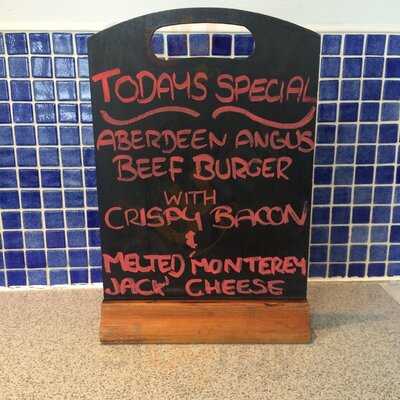 TODAYS SPECIAL
ABERDEEN ANGUS
BEEF BURGER
WITH
CRISPY BACON
&
MELTED MONTEREY
JACK CHEESE